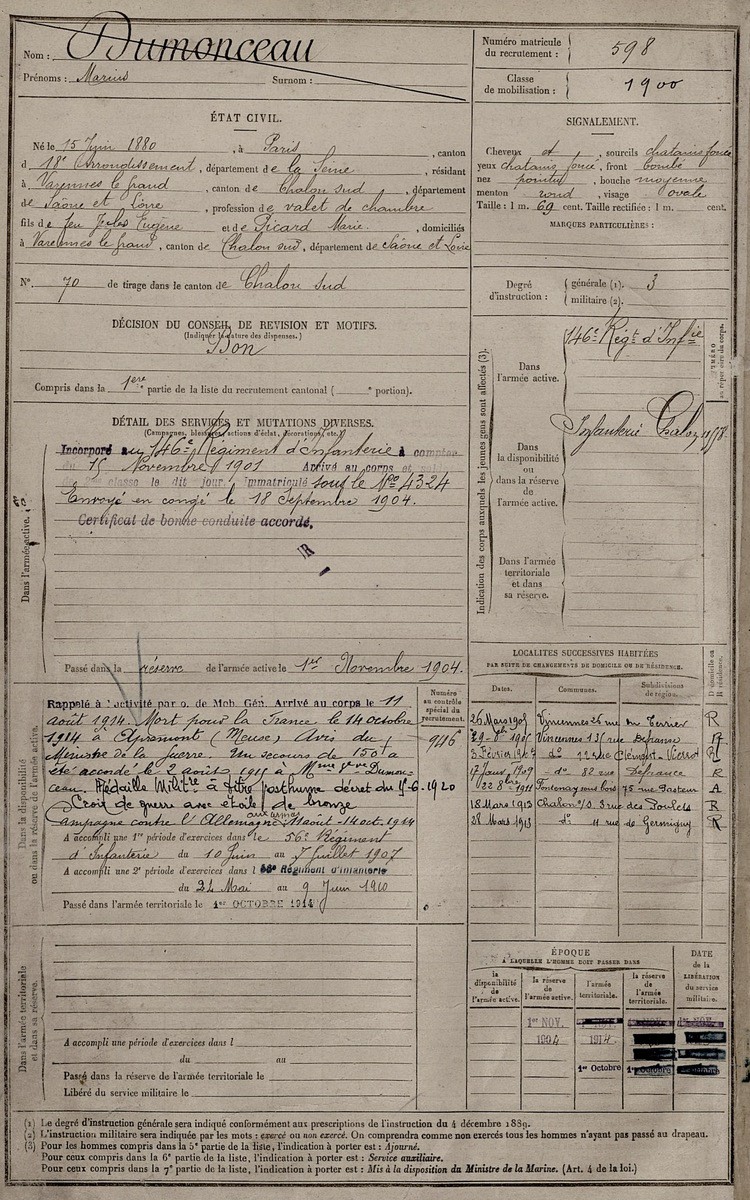 Nom : Dumonceau
Prénoms : Marius Surnom :
Numéro matricule du recrutement : 598
Classe de mobilisation : 1900
ÉTAT CIVIL.
Né le 15 Juin 1880, à Paris, canton
d 18e Arrondissement, département de la Seine, résidant
à Varennes le grand, canton de Chalon sud, département
de Saône et Loire, profession de valet de chambre
fils de feu Jules Eugène et de Picard Marie, domiciliés
à Varennes le grand, canton de Chalon sud, département de Saône et Loire
N° 70 de tirage dans le canton de Chalon Sud
SIGNALEMENT.
Cheveux et sourcils chatains foncé
yeux chatains foncé, front bombé
nez pointu, bouche moyenne
menton rond, visage ovale
Taille : 1 m. 69 cent. Taille rectifiée : 1 m. cent.
MARQUES PARTICULIÈRES :
DÉCISION DU CONSEIL DE REVISION ET MOTIFS.
(Indiquer la nature des dispenses.)
Bon
Compris dans la 1ere partie de la liste du recrutement cantonal ( e portion).
Degré d'instruction : générale (1). 3
militaire (2).
DÉTAIL DES SERVICES ET MUTATIONS DIVERSES.
(Campagnes, blessures, actions d'éclat, décorations, etc.)
Dans l'armée active.
Incorporé au 146e Régiment d'Infanterie à compter
du 15 Novembre 1901 Arrivé au corps et
classe le dit jour, immatriculé sous le No 4324
Envoyé en congé le 18 Septembre 1904.
Certificat de bonne conduite accordé.
Passé dans la réserve de l'armée active le 1er Novembre 1904.
Indication des corps auxquels les jeunes gens sont affectés (3).
NUMÉRO
au répertoire du corps.
Dans l'armée active.
146e Régt d'Infie
Dans la disponibilité ou dans la réserve de l'armée active.
Infanterie Chalon
Dans l'armée territoriale et dans sa réserve.
Dans la disponibilité ou dans la réserve de l'armée active.
Numéro au contrôle spécial du recrutement.
946
Rappelé à l'activité par o. de Mob. Gén. Arrivé au corps le 11
août 1914. Mort pour la France le 14 octobre
1914 à Apremont (Meuse) Avis du
Ministre de la Guerre. Un secours de 150f a
été accordé le 2 août 1915 à Mme Vve Dumon-
ceau. Médaille Militre à titre posthume décret du 6-1920
Croix de guerre avec étoile de bronze
Campagne contre l'Allemagne août 14 oct. 1914
A accompli une 1re période d'exercices dans le 56e Régiment
d'Infanterie du 10 Juin au 7 Juillet 1907
A accompli une 2e période d'exercices dans l 56e Régiment d'Infanterie
du 24 Mai au 9 Juin 1910
Passé dans l'armée territoriale le 1er OCTOBRE 1914
LOCALITÉS SUCCESSIVES HABITÉES
PAR SUITE DE CHANGEMENTS DE DOMICILE OU DE RÉSIDENCE.
Dates. Communes. Subdivisions de région. Domicile ou résidence.
26 Mars 1905 Vincennes 26 rue du Terrier R
Vincennes 131 rue Defrance
3 Février do rue Clément R
17 Janv 1909 do 82 rue Defrance R
22 8bre 1911 Fontenay sous bois 75 rue Pasteur A
18 Mars 1913 Chalon s/S 3 rue des Poulets R
28 Mars 1913 do 11 rue de Germigny R
Dans l'armée territoriale et dans sa réserve.
A accompli une période d'exercices dans l
du au
Passé dans la réserve de l'armée territoriale le
Libéré du service militaire le
ÉPOQUE
A LAQUELLE L'HOMME DOIT PASSER DANS
la disponibilité de l'armée active. la réserve de l'armée active. l'armée territoriale. la réserve de l'armée territoriale.
DATE de la LIBÉRATION du service militaire.
1er NOV.
1904 1914
1er Octobre 1er Octobre
(1) Le degré d'instruction générale sera indiqué conformément aux prescriptions de l'instruction du 4 décembre 1889.
(2) L'instruction militaire sera indiquée par les mots : exercé ou non exercé. On comprendra comme non exercés tous les hommes n'ayant pas passé au drapeau.
(3) Pour les hommes compris dans la 5e partie de la liste, l'indication à porter est : Ajourné.
Pour ceux compris dans la 6e partie de la liste, l'indication à porter est : Service auxiliaire.
Pour ceux compris dans la 7e partie de la liste, l'indication à porter est : Mis à la disposition du Ministre de la Marine. (Art. 4 de la loi.)